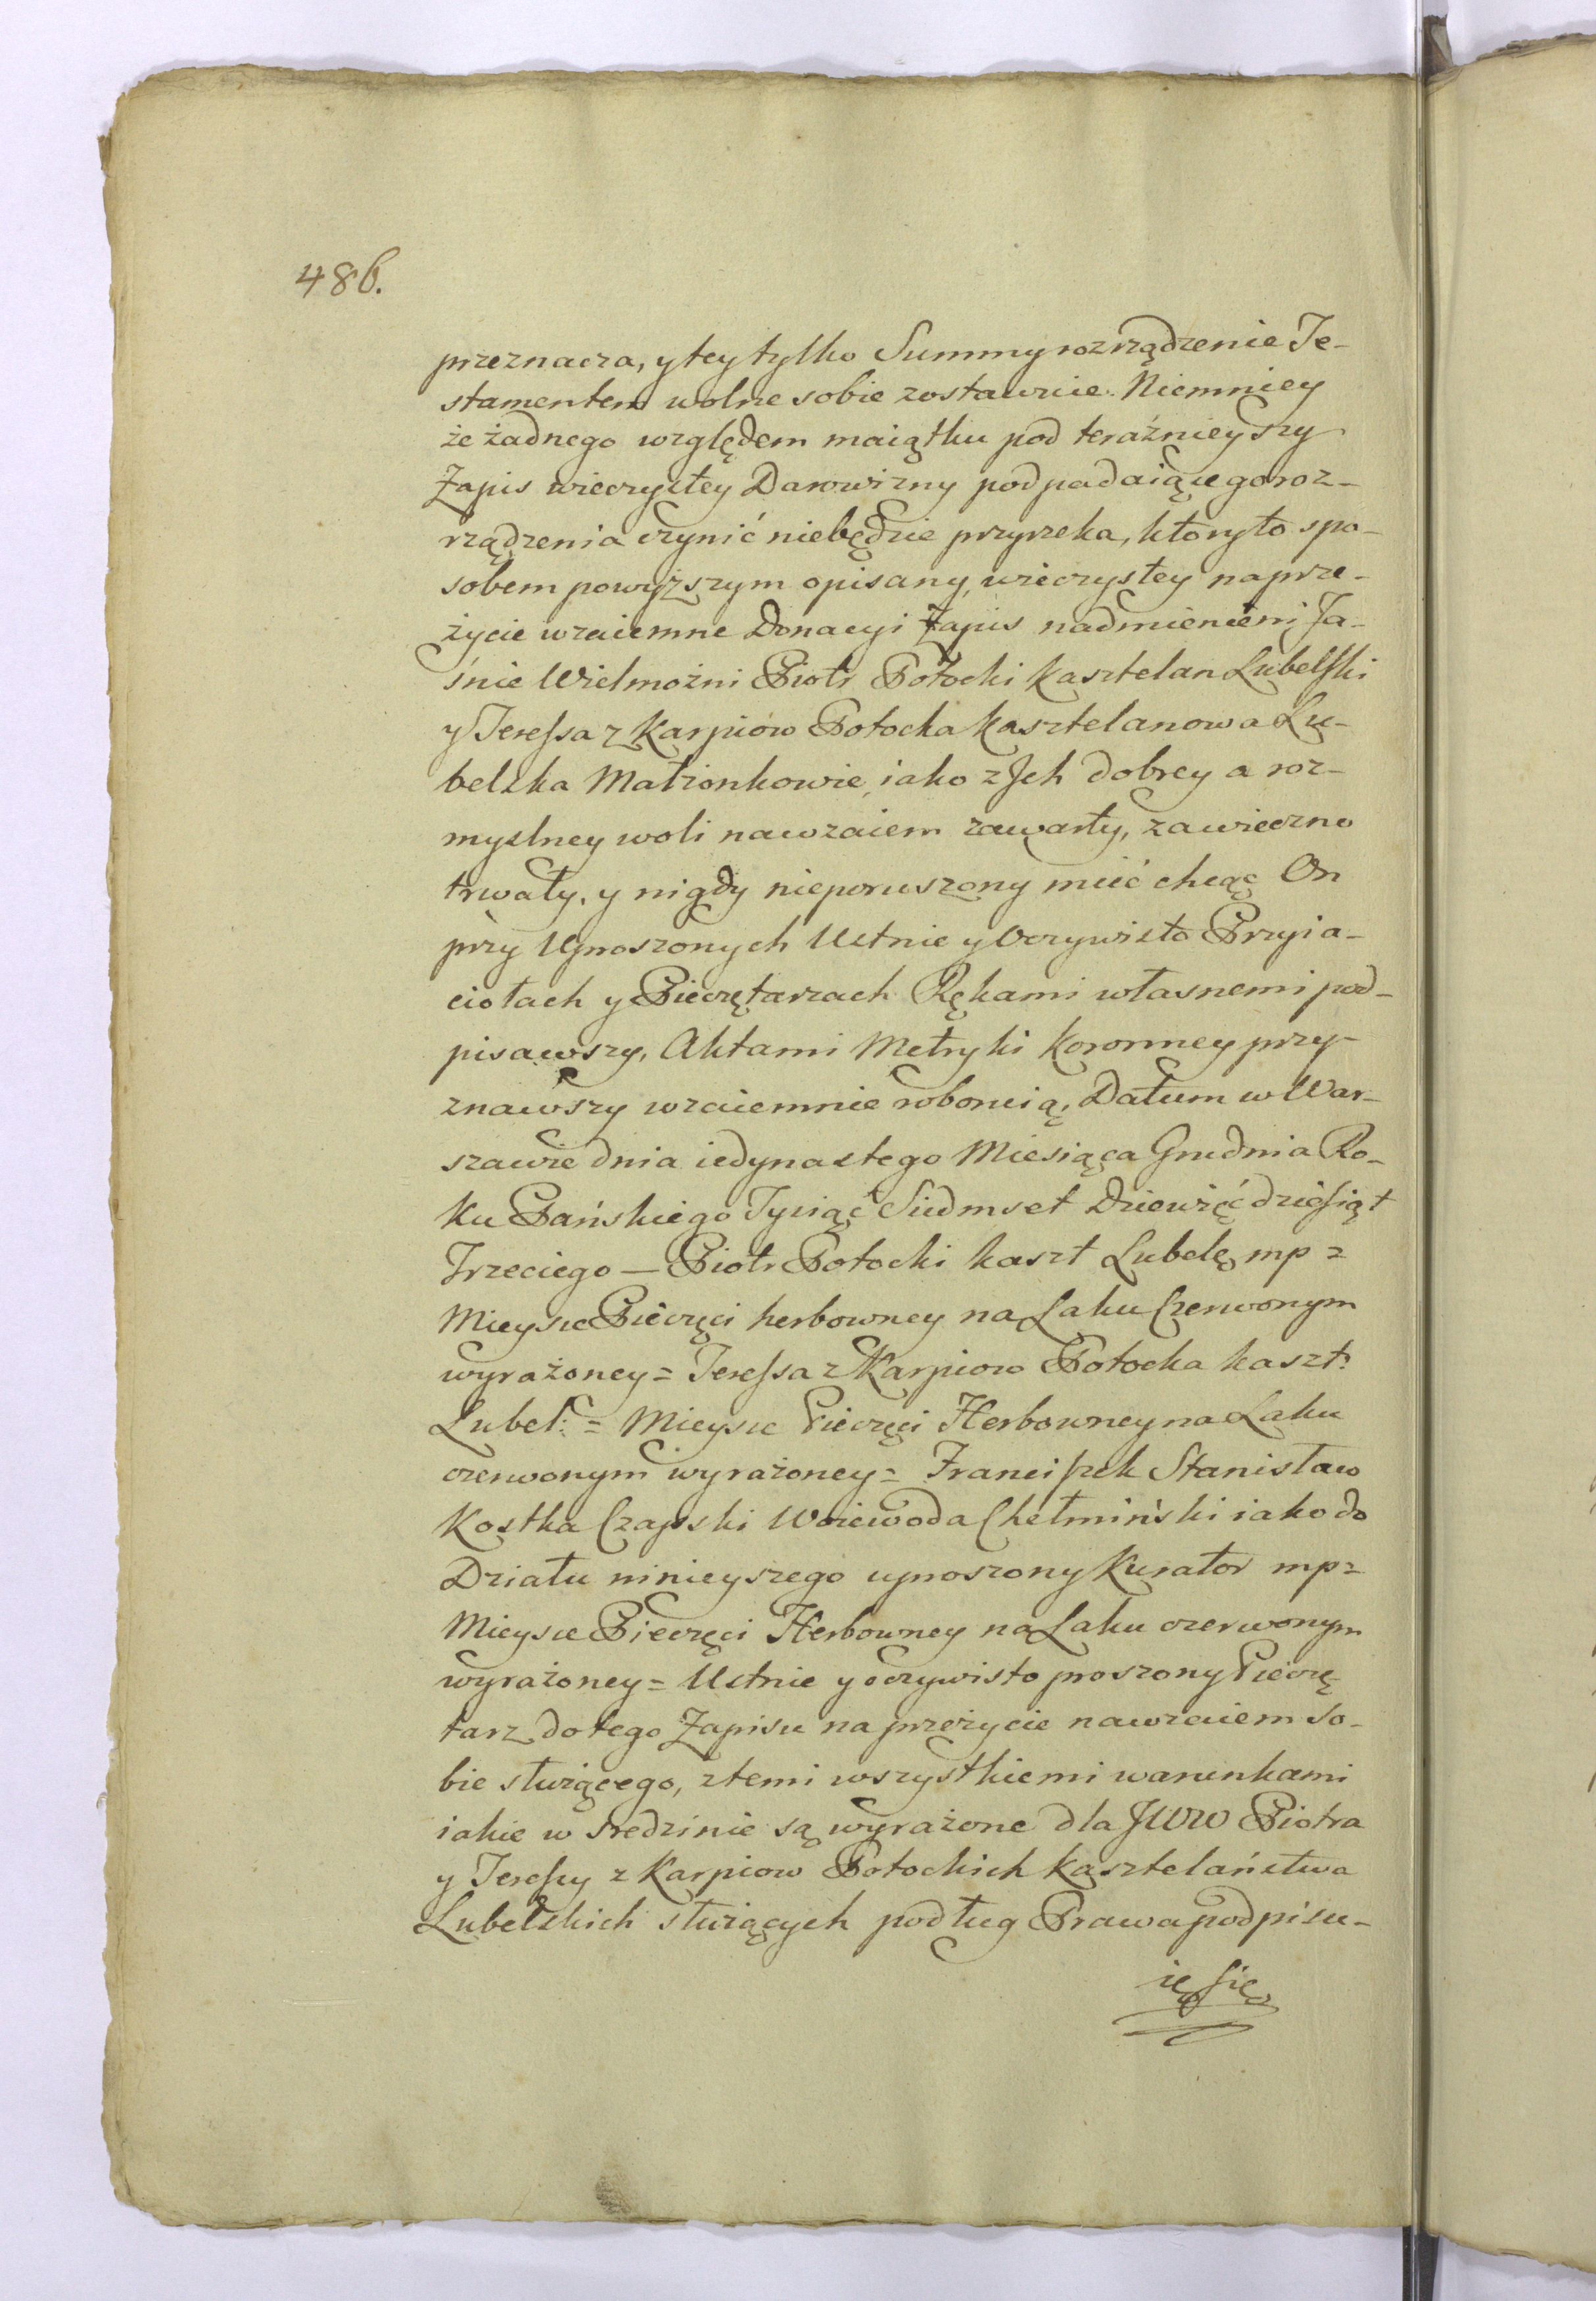 486.
przeznacza, y tey tylko Summy rozrządzenie Te-
stamentem wolne sobie zostawuie. Niemniey
że żadnego względem maiątku pod teraźnieyszy
Zapis wieczystey Darowizny podpadaiącego roz-
rządzenia czynić niebędzie przyrzeka, który to spo-
sobem powyższym opisany, wieczystey na prze-
życie wzaiemne Donacyi Zapis nadmienieni Ja-
śnie Wielmożni Piotr Potocki Kasztelan Lubelski
y Teressa z Karpiow Potocka Kasztelanowa Lu-
belska Małżonkowie, iako z Jch dobrey a roz-
myslney woli nawzaiem zawarty, za wieczno
trwały, y nigdy nieporuszony mieć chcąc On
przy Uproszonych Ustnie y Oczywisto Przyia-
ciołach y Pieczętarzach Rękami własnemi pod-
pisawszy, Aktami Metryki Koronney przy-
znawszy wzaiemnie roboruią, Datum w War-
szawie dnia iedynastego Miesiąca Grudnia Ro-
ku Pańskiego Tysiąc Siedmset Dziewięćdziesiąt
Trzeciego — Piotr Potocki kaszt Lubelę mp =
Mieysce Pieczęci herbowney na Laku Czerwonym
wyrażoney = Teressa z Karpiow Potocka kaszt:
Lubel: = Mieysce Pieczęci Herbowney na Laku
czerwonym wyrażoney = Franciszek Stanisław
Kostka Czapski Woiewoda Chełmiński iako do
Działu ninieyszego uproszony Kurator mp =
Mieysce Pieczęci Herbowney na Laku czerwonym
wyrażoney = Ustnie y oczywisto proszony Pieczę
tarz do tego Zapisu na przeżycie nawzaiem So-
bie służącego, z temi wszystkiemi warunkami
iakie w sredzinie są wyrażone dla JWW Piotra
y Teressy z Karpiow Potockich Kasztelaństwa
Lubelskich służących podług Prawa podpisu-
ię się